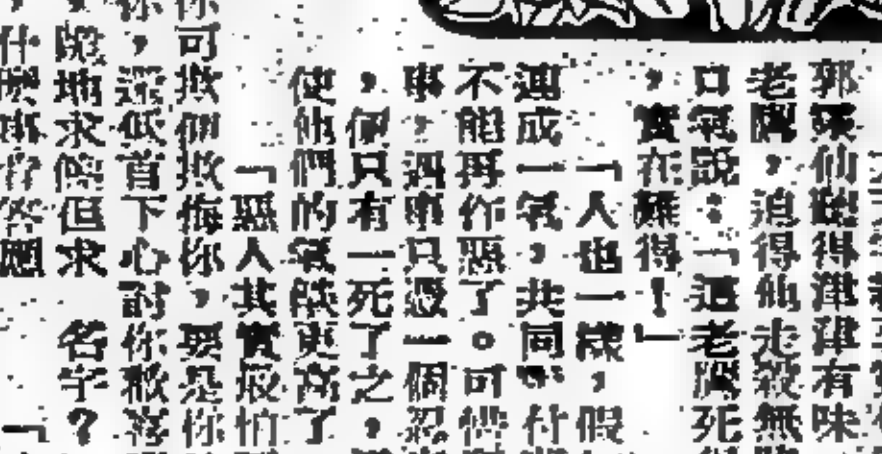 郭珠仙聽得津津有味
老闆，迫得他走殺無
口氣說：「這老闆死
，實在難得！」
「人也一樣，假
連成一氣，共同對付
不能再作惡了。可惜
事，遇事只憑一個忍
，便只有一死了之，
使他們的氣燄更高了
「惡人其實最怕
你可欺侮你，要是你
你，還低首下心討你歡喜
跪地求饒但求 名字？
什麼事 答應 「